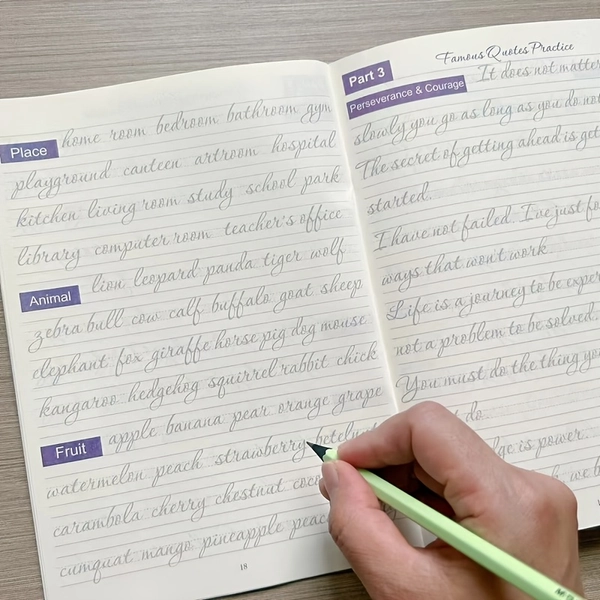 Place home room bedroom bathroom gym
playground canteen artroom hospital
kitchen living room study school park
library computer room teacher's office
Animal lion leopard panda tiger wolf
zebra bull cow calf buffalo goat sheep
elephant fox giraffe horse pig dog mouse
kangaroo hedgehog squirrel rabbit chick
Fruit apple banana pear orange grape
watermelon peach strawberry betelnut
carambola cherry chestnut coco
cumquat mango pineapple peac
18
Famous Quotes Practice
Part 3
Perseverance & Courage It does not matter
slowly you go as long as you do not
The secret of getting ahead is get
started.
I have not failed. I've just fo
ways that won't work
Life is a journey to be exper
not a problem to be solved.
You must do the thing yo
do.
ge is power.
we b